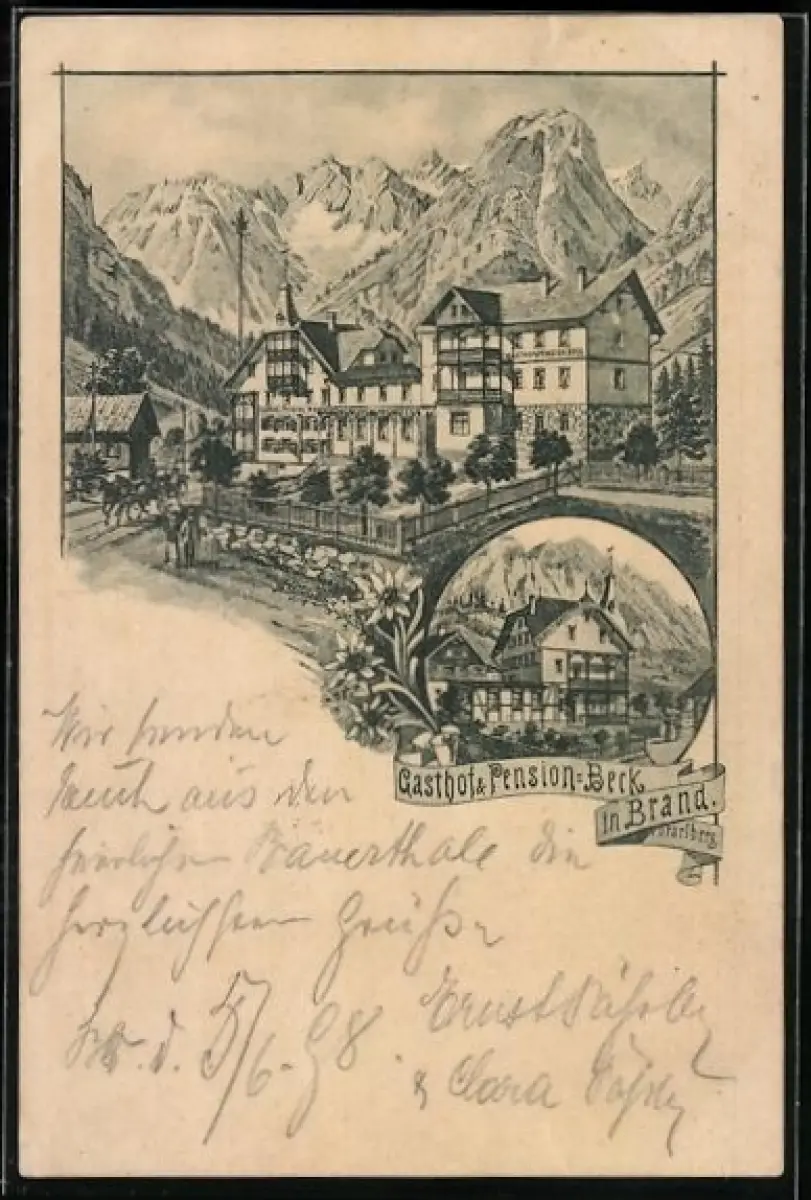 Gasthof & Pension=Beck
in Brand.
Vorarlberg.
Wir senden
Euch aus dem
herrlichen
die
herzlichsten Grüße
d. 5/6. 98.
Ernst
& Clara